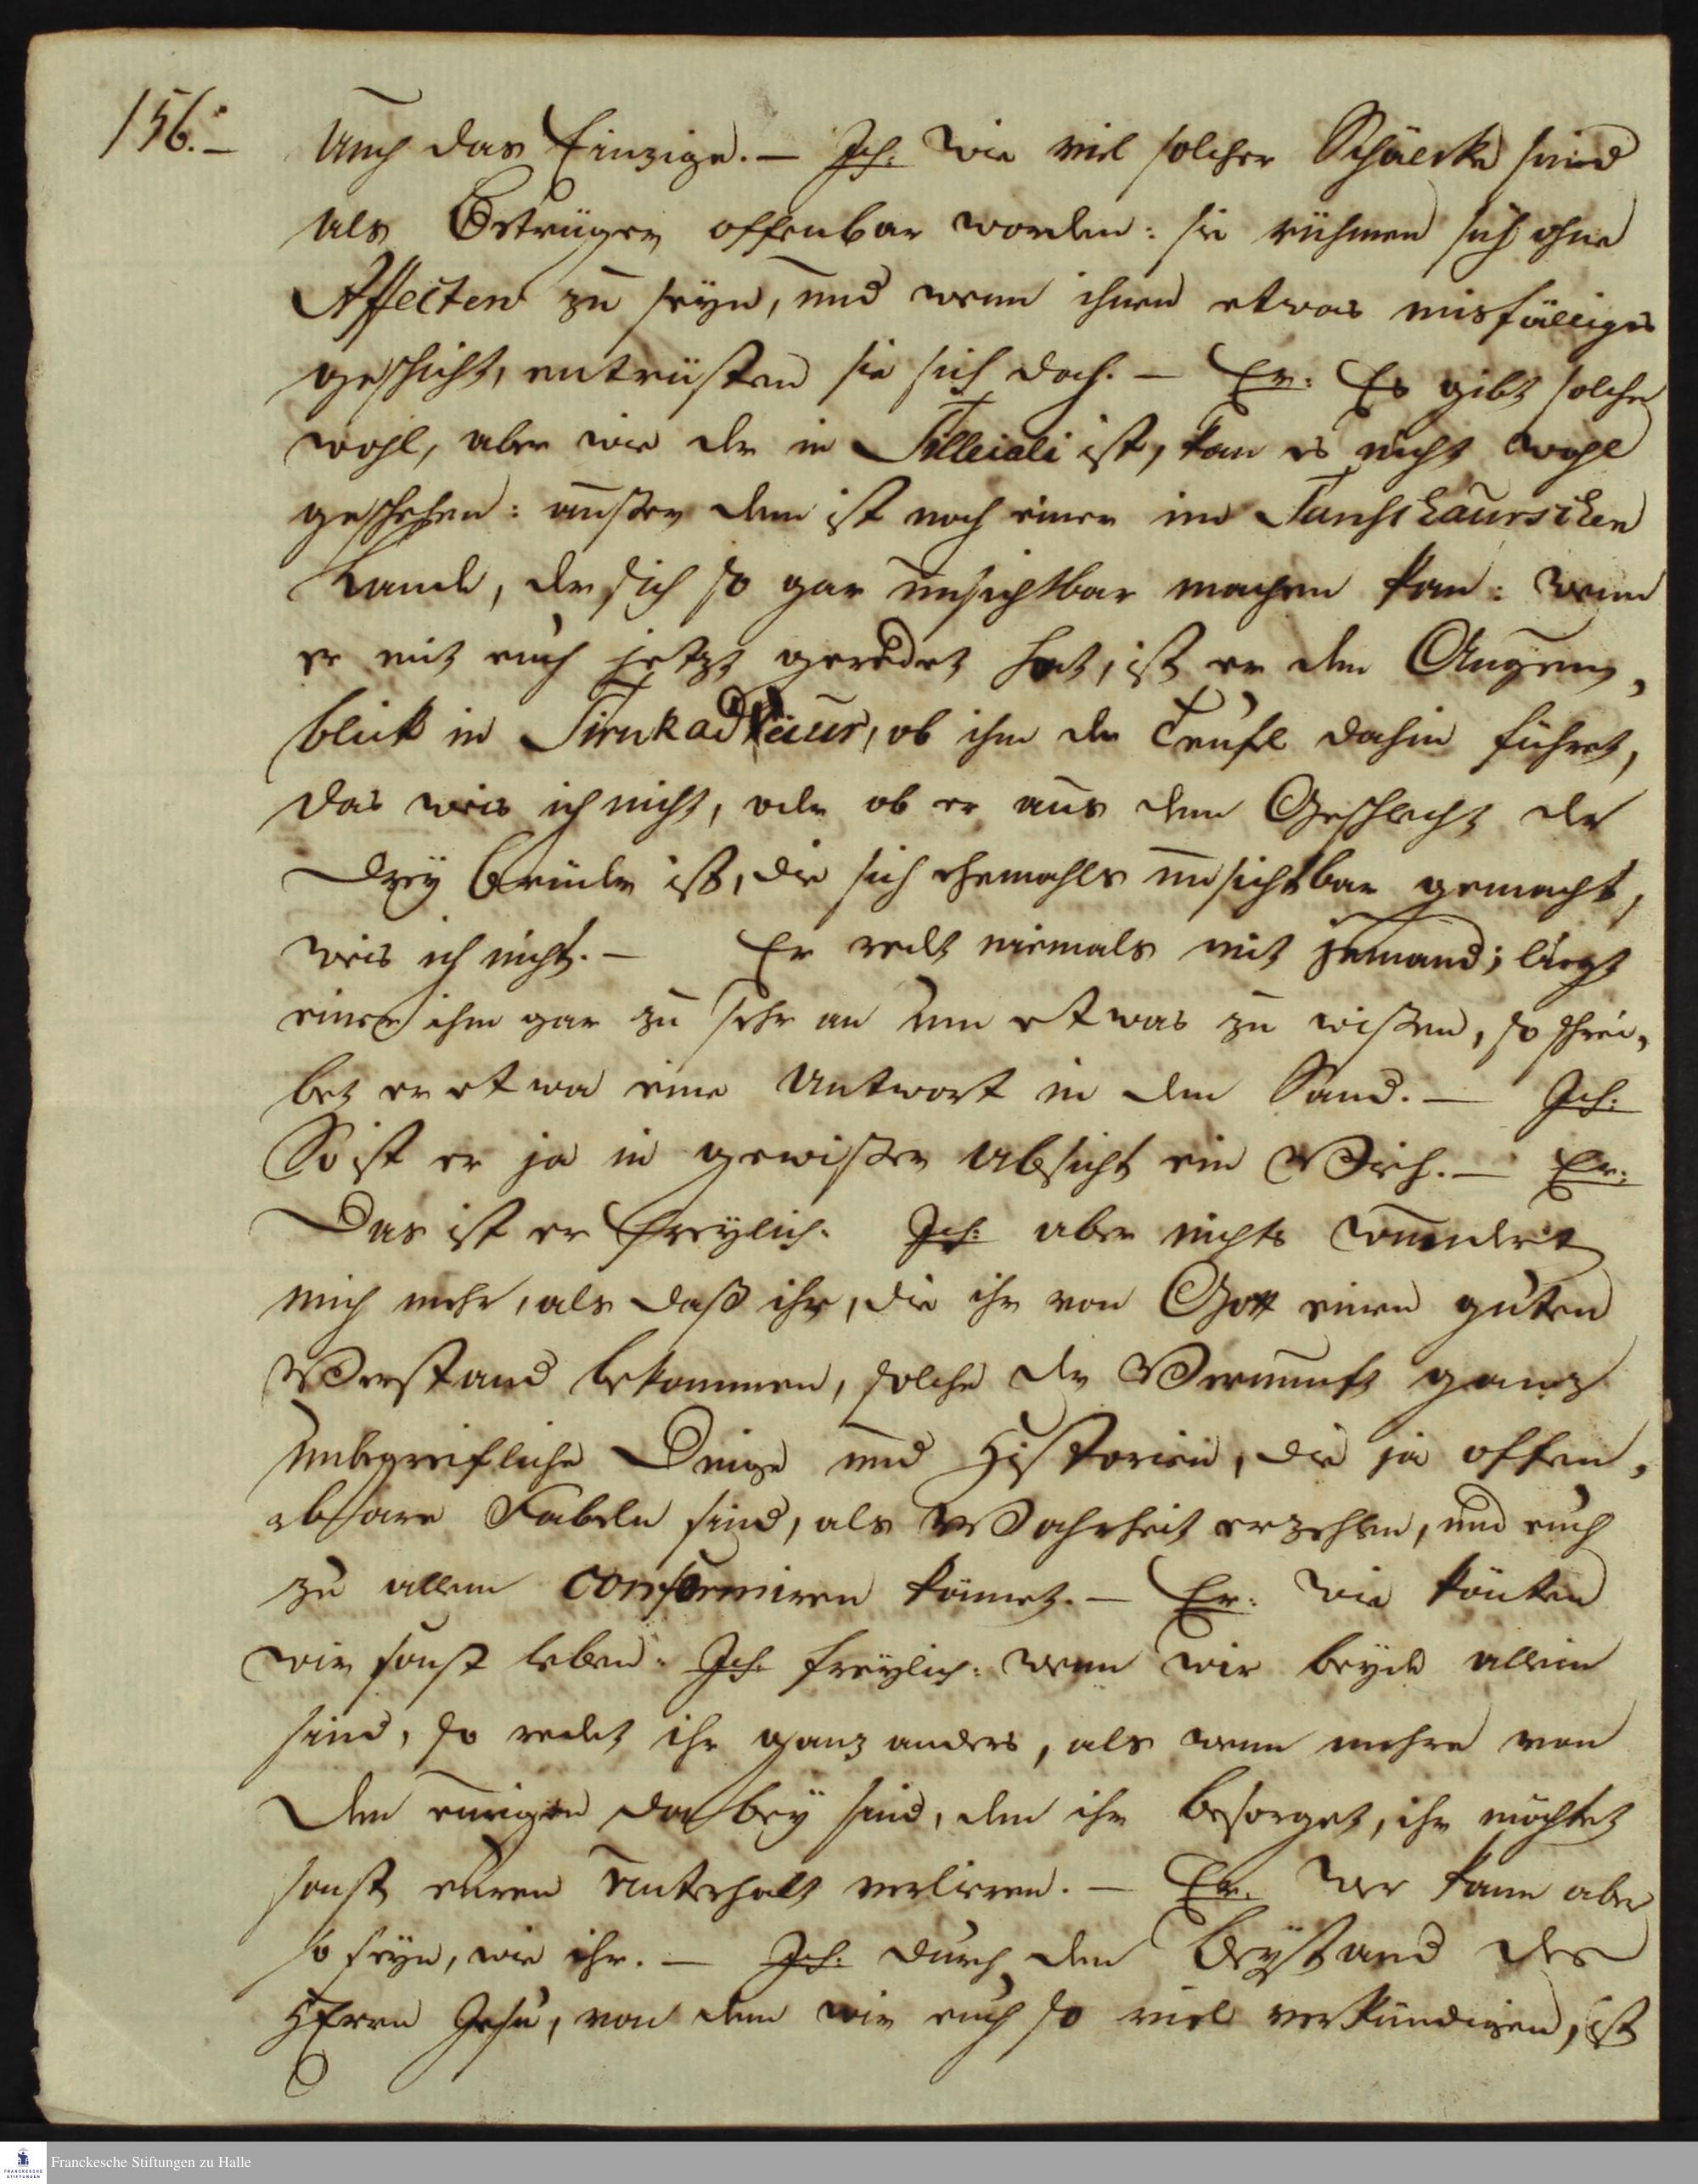 156.
Auch das Einzige. — Ich: Wie viel solcher Schälcke sind
als Betrüger offenbar worden: sie rühmen sich ohne
Affecten zu seyn, und wenn ihnen etwas misfälliges
geschicht, entrüsten sie sich doch. — Er: Es gibt solche
wohl, aber wie der in Tilleiali ist, kan es nicht wohl
geschehen: außer dem ist noch einer im Tanschaurschen
Lande, der sich so gar unsichtbar machen kan: wenn
er mit euch jetzt geredet hat, ist er den Augen,
blick in Tirukadeiur, ob ihn der Teufel dahin führet,
das weis ich nicht, oder ob er aus dem Geschlecht der
Drey Brüder ist, die sich ehemahls unsichtbar gemacht,
weis ich nicht. — Er redt niemals mit jemand; liegt
einer ihm gar zu sehr an um etwas zu wißen, so schrei,
bet er etwa eine Antwort in den Sand. — Ich:
So ist er ja in gewißer Absicht ein Vieh. — Er:
Das ist er freylich. Ich: aber nichts wundert
mich mehr, als daß ihr, die ihr von Gott einen guten
Verstand bekommen, solche der Vernunft ganz
unbegreifliche Dinge und Historien, die ja offen,
bare Fabeln sind, als Wahrheit erzehlen, und euch
zu allem conformiren könnet. — Er: Wie könten
wir sonst leben. Ich: freylich: wenn wir beyde allein
sind, so redet ihr ganz anders, als wenn mehre von
den eurigen dabey sind, den ihr besorget, ihr möchtet
sonst euren Unterhalt verlieren. — Er: Wer kann aber
so seyn, wie ihr. — Ich: durch den Beystand des
HErrn Jesu, von dem wir euch so viel verkündigen, ist
Franckesche Stiftungen zu Halle
FRANCKESCHE
STIFTUNGEN